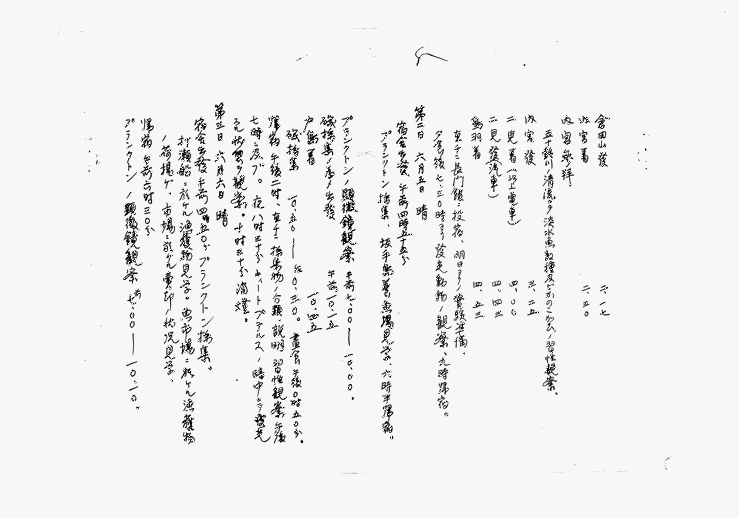 倉田山發 二.一七
内宮着 二.三〇
内宮參拝
五十鈴川ノ清流ヲ淡水魚数種及ビかのこがひノ習性観察、
内宮發 三.二五
二見着(以上電車) 四.〇〇
二見發(汽車) 四.
鳥羽着 四.五三
直チニ長門館ニ投宿、明日ヨリノ實験準備、
夕食後七.三〇時ヨリ發光動物ノ観察、九時歸宿。
第二日 六月五日 晴
宿舎出發午前四時五十五分
プランクトン採集、坂手 魚場見学、六時半歸宿。
プランクトンノ顕微鏡観察 午前七.〇〇―一〇.〇〇.
磯採集ノ為メ出發 午前一〇.一五
島着 一〇.四五
磯採集 一〇.五〇― 〇.三〇。晝食 午後〇時五〇分.
歸宿 午後二時、直チニ採集物ノ分類、説明、習性観察、午後
七時ニ及ブ。夜八時三十分 ノ暗中ニテ發光
状態ヲ観察。十時三十分消燈。
第三日 六月六日 晴
宿舎出發午前四時五〇分プランクトン採集。
打瀬船ニ於ケル漁獲物見学。魚市場ニ於ケル漁獲物
ノ荷揚ゲ、市場ニ於ケル賣却ノ状況見学、
歸宿 午前六時三〇分
プランクトンノ顕微鏡観察 前七.〇〇―一〇.一〇.